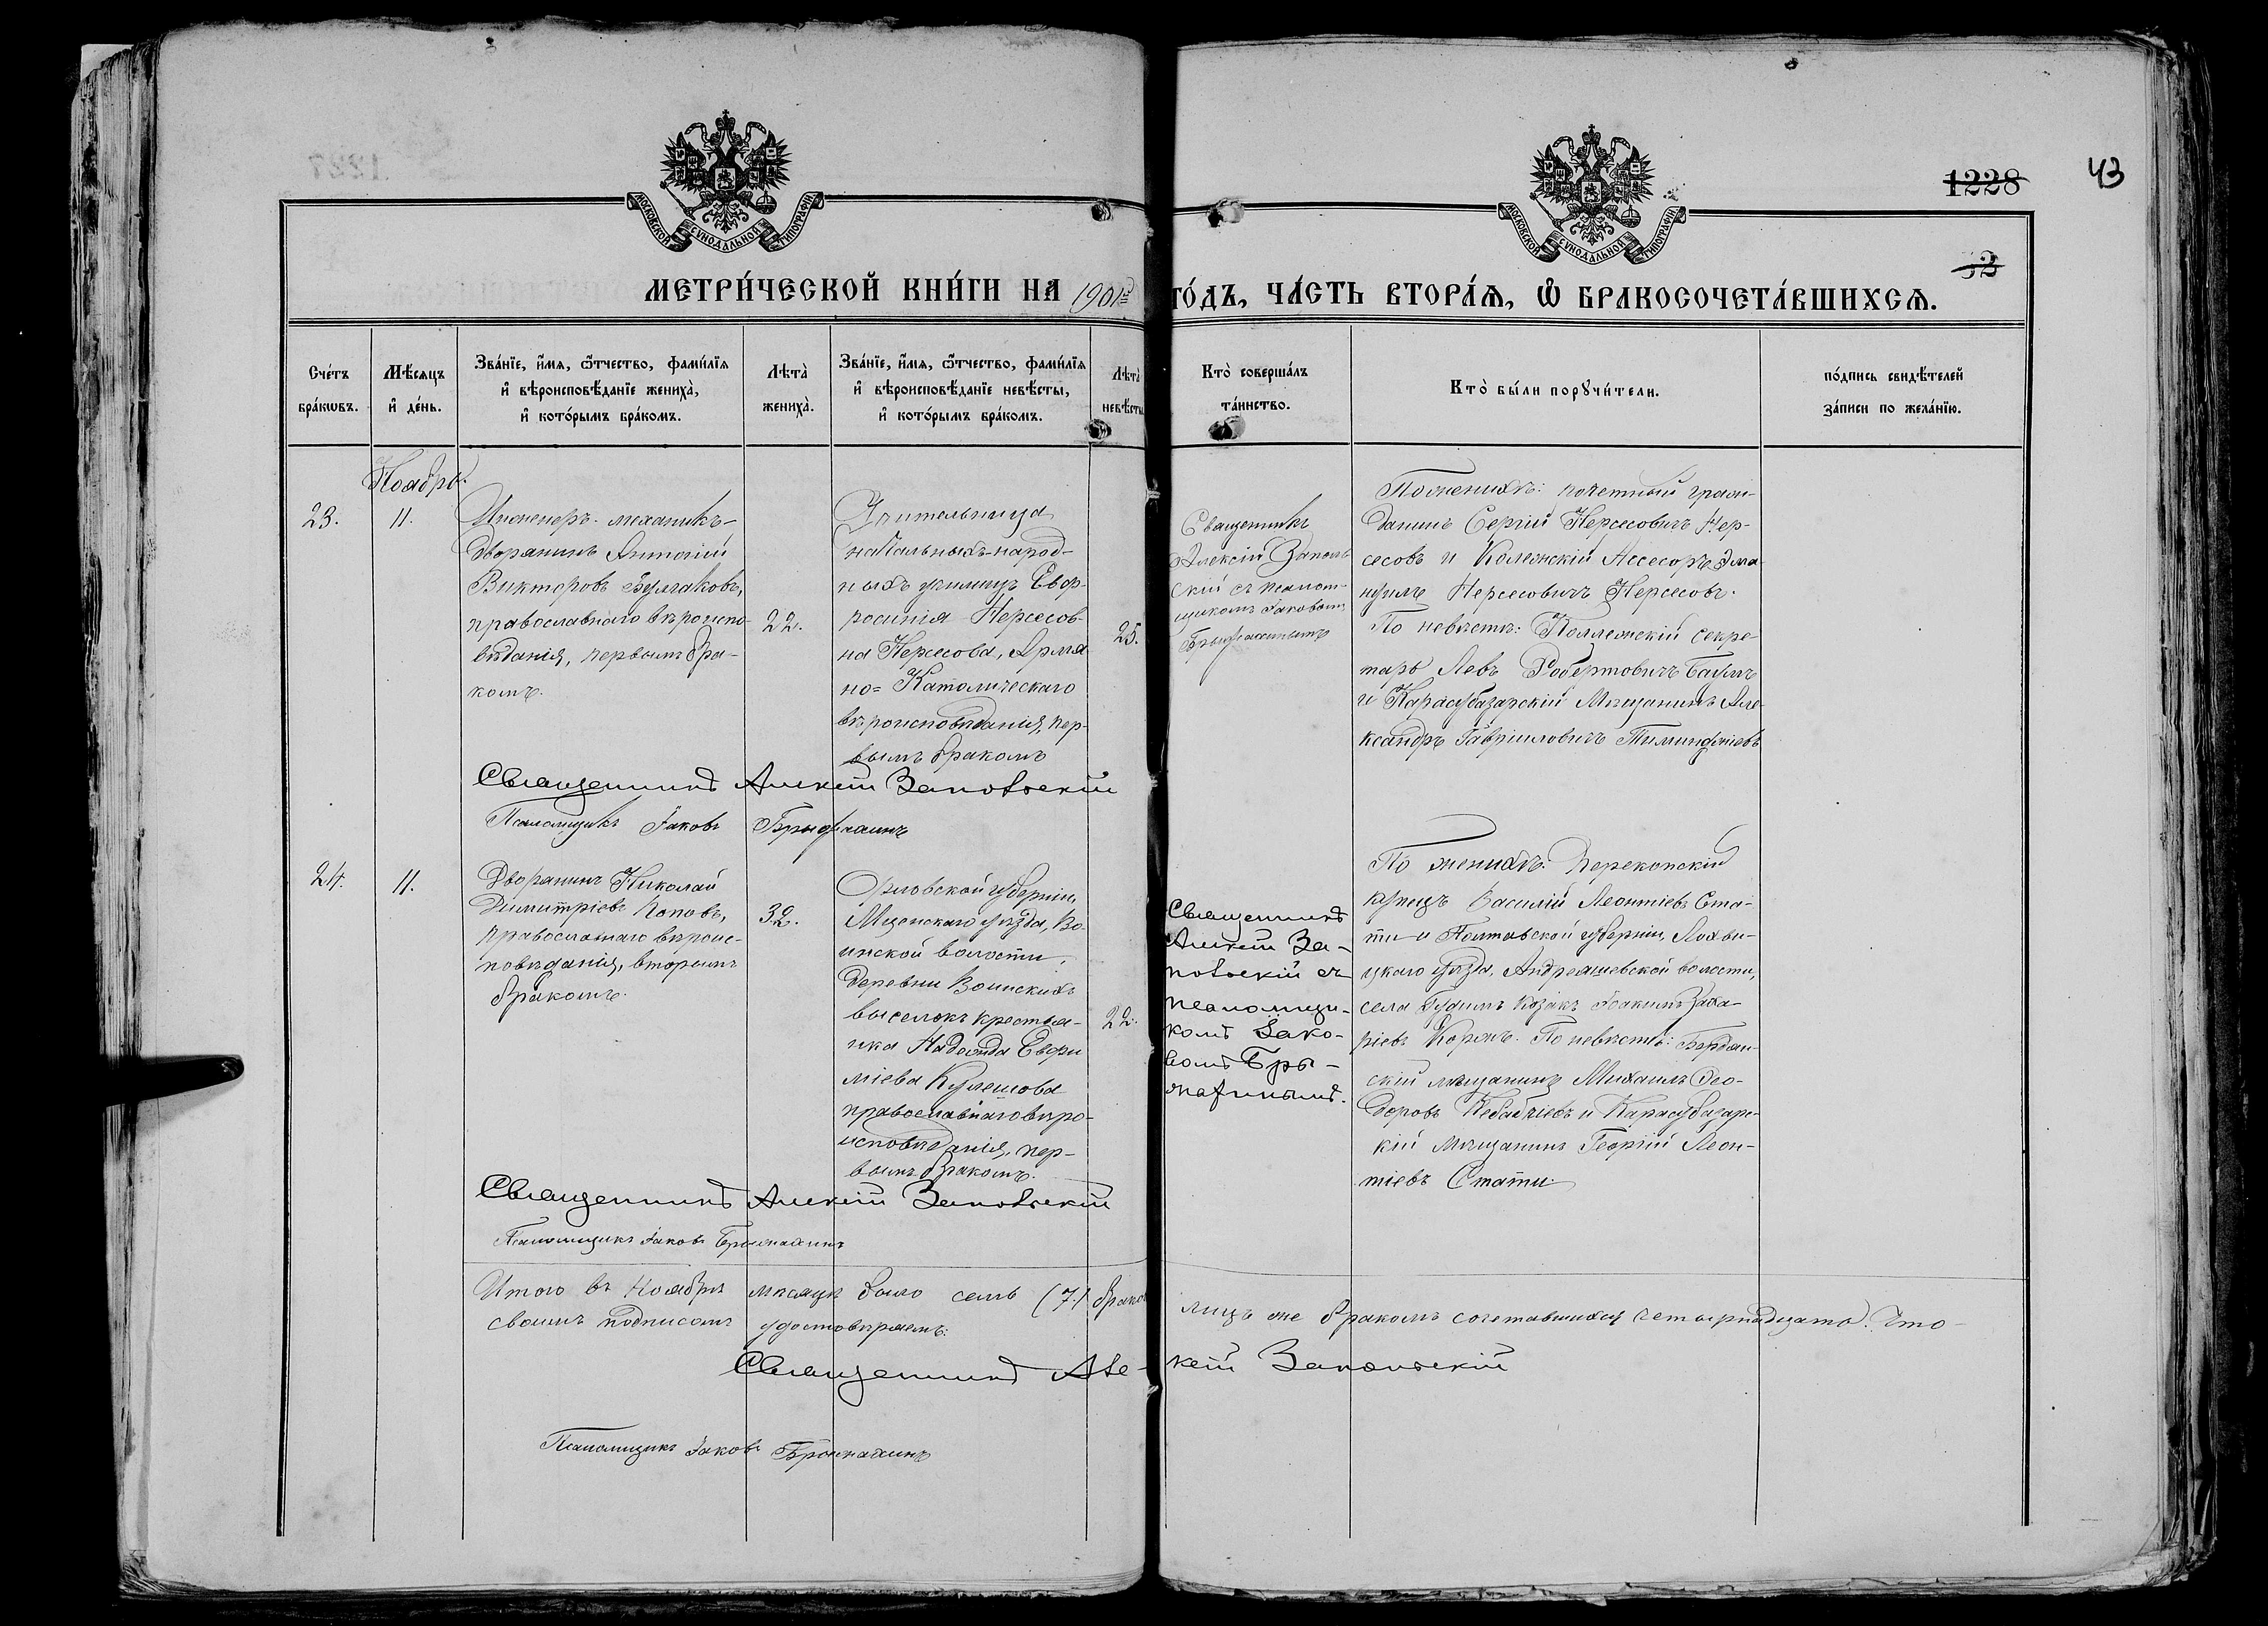 1228
43
32
МОСКОВСКОЙ СѴНОДАЛЬНОЙ ТИПОГРАФІИ
МОСКОВСКОЙ СѴНОДАЛЬНОЙ ТИПОГРАФІИ
МЕТРИ́ЧЕСКОЙ КНИ́ГИ НА 1901й ГО́ДЪ, ЧА́СТЬ ВТОРА́Ѧ, Ѽ БРАКОСОЧЕТА́ВШИХСѦ.
Сче́тъ бра́кѡвъ.
Мѣ́сяцъ и҆ де́нь.
Зва́нїе, и҆́мѧ, ѻ҆́тчество, фами́лїѧ
и҆ вѣроисповѣ́данїе жениха̀,
и҆ кото́рымъ бра́комъ.
Лѣта̀ жениха̀.
Зва́нїе, и҆́мѧ, ѻ҆́тчество, фами́лїѧ
и҆ вѣроисповѣ́данїе невѣ́сты,
и҆ кото́рымъ бра́комъ.
Лѣта̀ невѣ́сты
Кто̀ соверша́лъ
та́инство.
Кто̀ бы́ли порꙋчи́тели.
по́дпись свидѣ́телей
за́писи по жела́нїю.
Ноябрь.
23.
11.
Инженеръ-механикъ-
дворянинъ Антоній
Викторовъ Булгаковъ,
православнаго вѣроиспо-
вѣданія, первымъ бра-
комъ.
22.
Учительница
начальныхъ-народ-
ныхъ училищъ Евф-
росинія Нерсесов-
на Нерсесова, Армя-
но=Католическаго
вѣроисповѣданія, пер-
вымъ бракомъ
25.
Священникъ
Алексій Заполь
скій съ псалом-
щикомъ Іаковомъ
Брыжахинымъ
По женихѣ: почетный граж-
данинъ Сергій Нерсесовичъ Нер-
сесовъ и Колежскій Ассесоръ Эма
нуилъ Нерсесовичъ Нерсесовъ.
По невѣстѣ: Коллежскій секре-
тарь Левъ Робертовичъ Баумъ
и Карасубазарскій Мѣщанинъ Але-
ксандръ Гавріиловичъ Тиминджіевъ
Священникъ Алексій Запольскій
Псаломщикъ Іаковъ Брыжахинъ
24.
11.
Дворянинъ Николай
Димитріевъ Поповъ,
православнаго вѣроис-
повѣданія, вторымъ
бракомъ.
32.
Орловской губерніи,
Мценскаго уѣзда, Во-
инской волости,
деревни Воинскихъ
выселокъ крестья-
нка Надежда Евфи
міева Кулешова
православнаго вѣро-
исповѣданія, пер-
вымъ бракомъ.
22.
Священникъ
Алексій За-
польскій съ
псаломщи-
комъ Іако-
вомъ Бры-
жахинымъ.
По женихѣ: Перекопскій
купецъ Василій Леонтіевъ Ста-
ти и Полтавской губерніи, Лохви-
цкаго уѣзда, Андреяшевской волости,
села Гудимъ козакъ Іоакимъ Заха-
ріевъ Коржъ. По невѣстѣ: Бердян-
скій мѣщанинъ Михаилъ Ѳео-
доровъ Кебабчіевъ и Карасубазарс-
кій мѣщанинъ Георгій Леон-
тіевъ Стати.
Священникъ Алексій Запольскій
Псаломщикъ Іаковъ Брыжахинъ
Итого въ Ноябрѣ мѣсяцѣ было семь (7.) браковъ лицъ же бракомъ сочетавшихся четырнадцать. Что
своимъ подписомъ удостовѣряемъ:
Священникъ Алексій Запольскій
Псаломщикъ Іаковъ Брыжахинъ